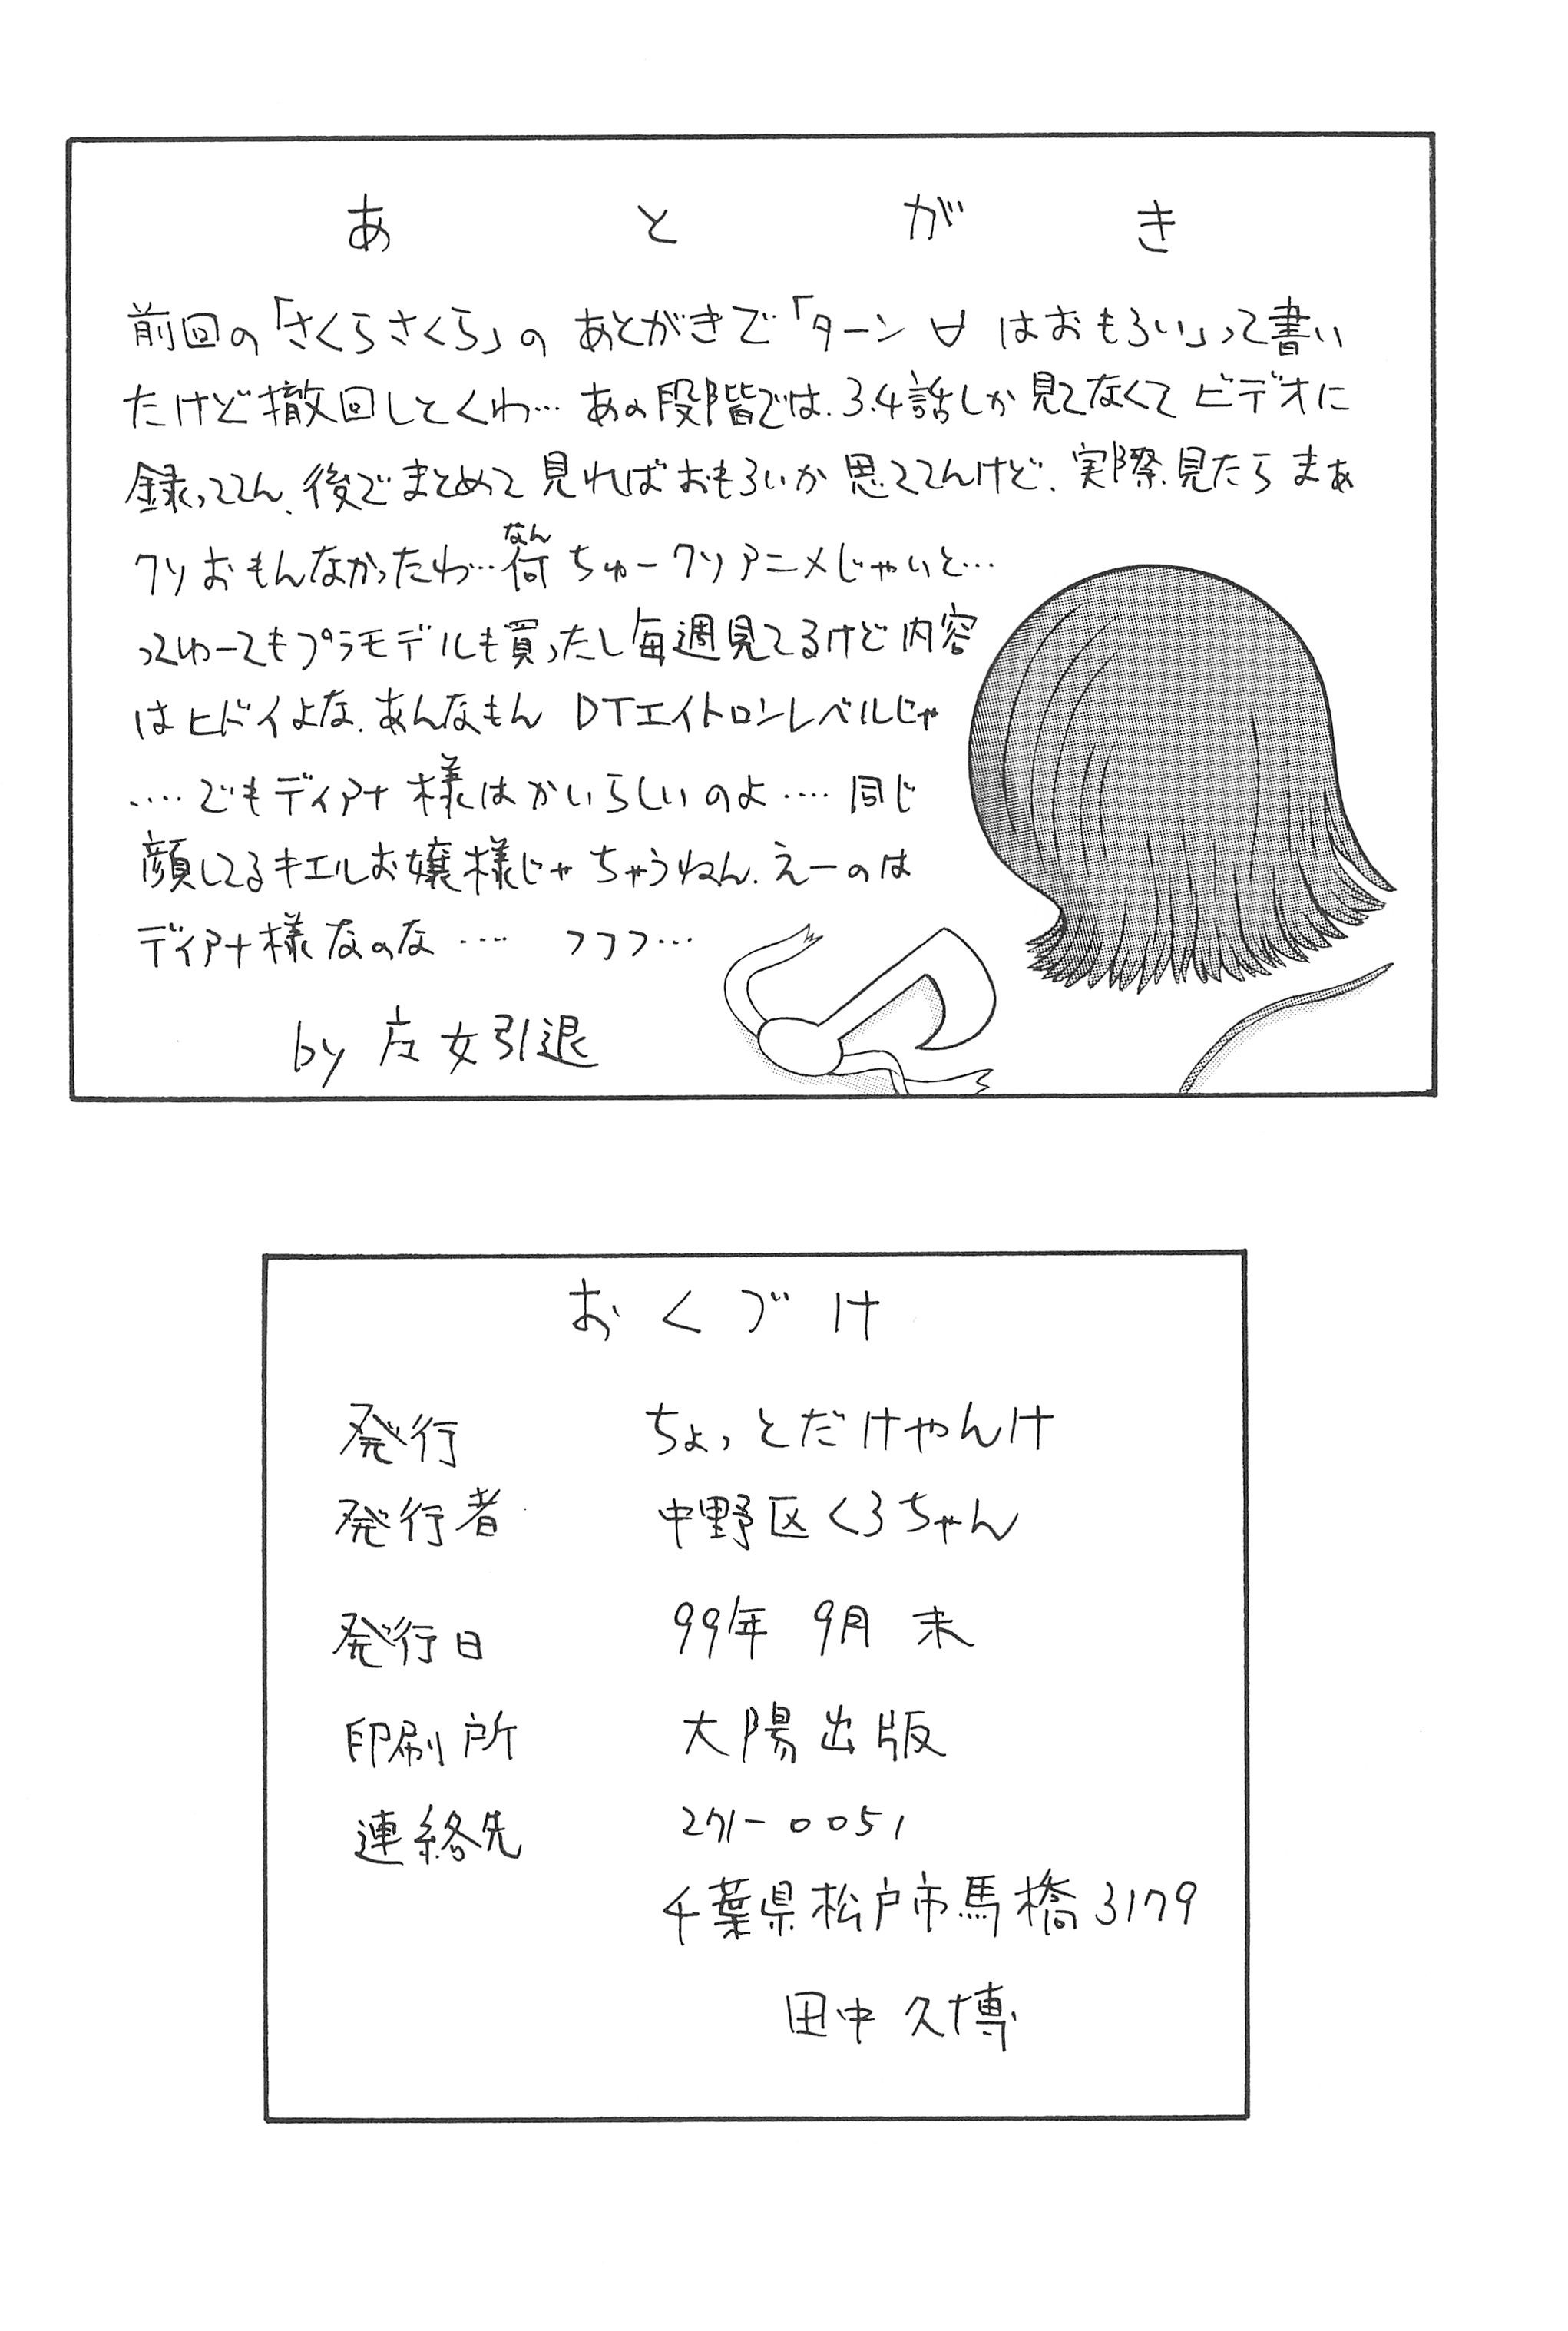 あとがき
前回の「さくらさくら」の あとがきで「ターン∀ はおもろい」って書い
たけど撤回しとくわ… あの段階では、3.4話しか見てなくて ビデオに
録っててん、後でまとめて見ればおもろいか思ててんけど、実際見たら まぁ
クソおもんなかったわ…何ちゅークソアニメじゃいと…
なん
ってゆーてもプラモデルも買ったし毎週見てるけど内容
はヒドイよな、あんなもん DTエイトロンレベルじゃ
‥‥でもディアナ様はかいらしいのよ‥‥同じ
顔してるキエルお嬢様じゃちゃうねん、えーのは
ディアナ様なのな‥‥ フフフ…
by 女引退
おくづけ
発行 ちょっとだけやんけ
発行者 中野区くろちゃん
発行日 99年 9月 末
印刷所 大陽出版
連絡先 271-0051
千葉県松戸市馬橋3179
田中 久博